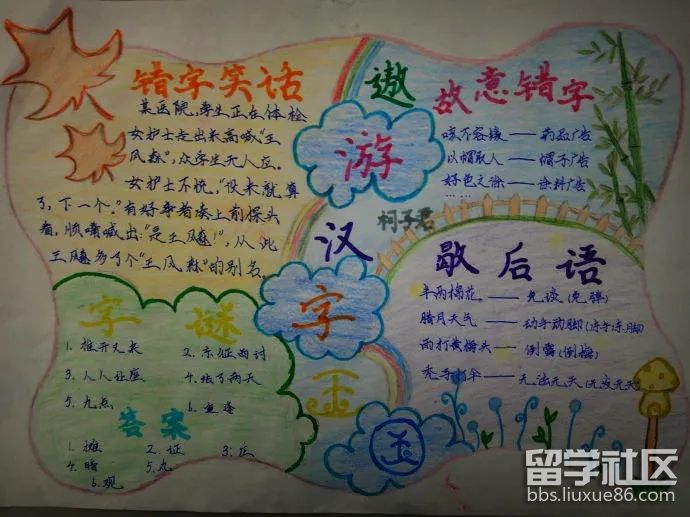 错字笑话
某医院,学生正在体检
女护士走出来高喊"王
风森",众学生无人应。
女护士不悦,"没来就算
了,下一个。"有好事者凑上前探头
看,顺嘴喊出:"是王飚!",从此
王飚多了个"王风森"的别名。
遨
游
汉
字
王
国
柯子君
故意错字
咳不容缓——药品广告
以帽取人——帽子广告
好色之涂——涂料广告
……
歇后语
半两棉花——免谈(免弹)
腊月天气——动手动脚(冻手冻脚)
雨打黄梅头——倒霉(倒梅)
秃子打伞——无法无天(无发无天)
字谜
1. 推开又来
2. 东征西讨
3. 人人让座
4. 拉了两天
5. 九点
6. 重逢
答案
1. 摊
2. 证
3. 庄
4. 暗
5. 丸
6. 观
留学社区
bbs.liuxue86.com